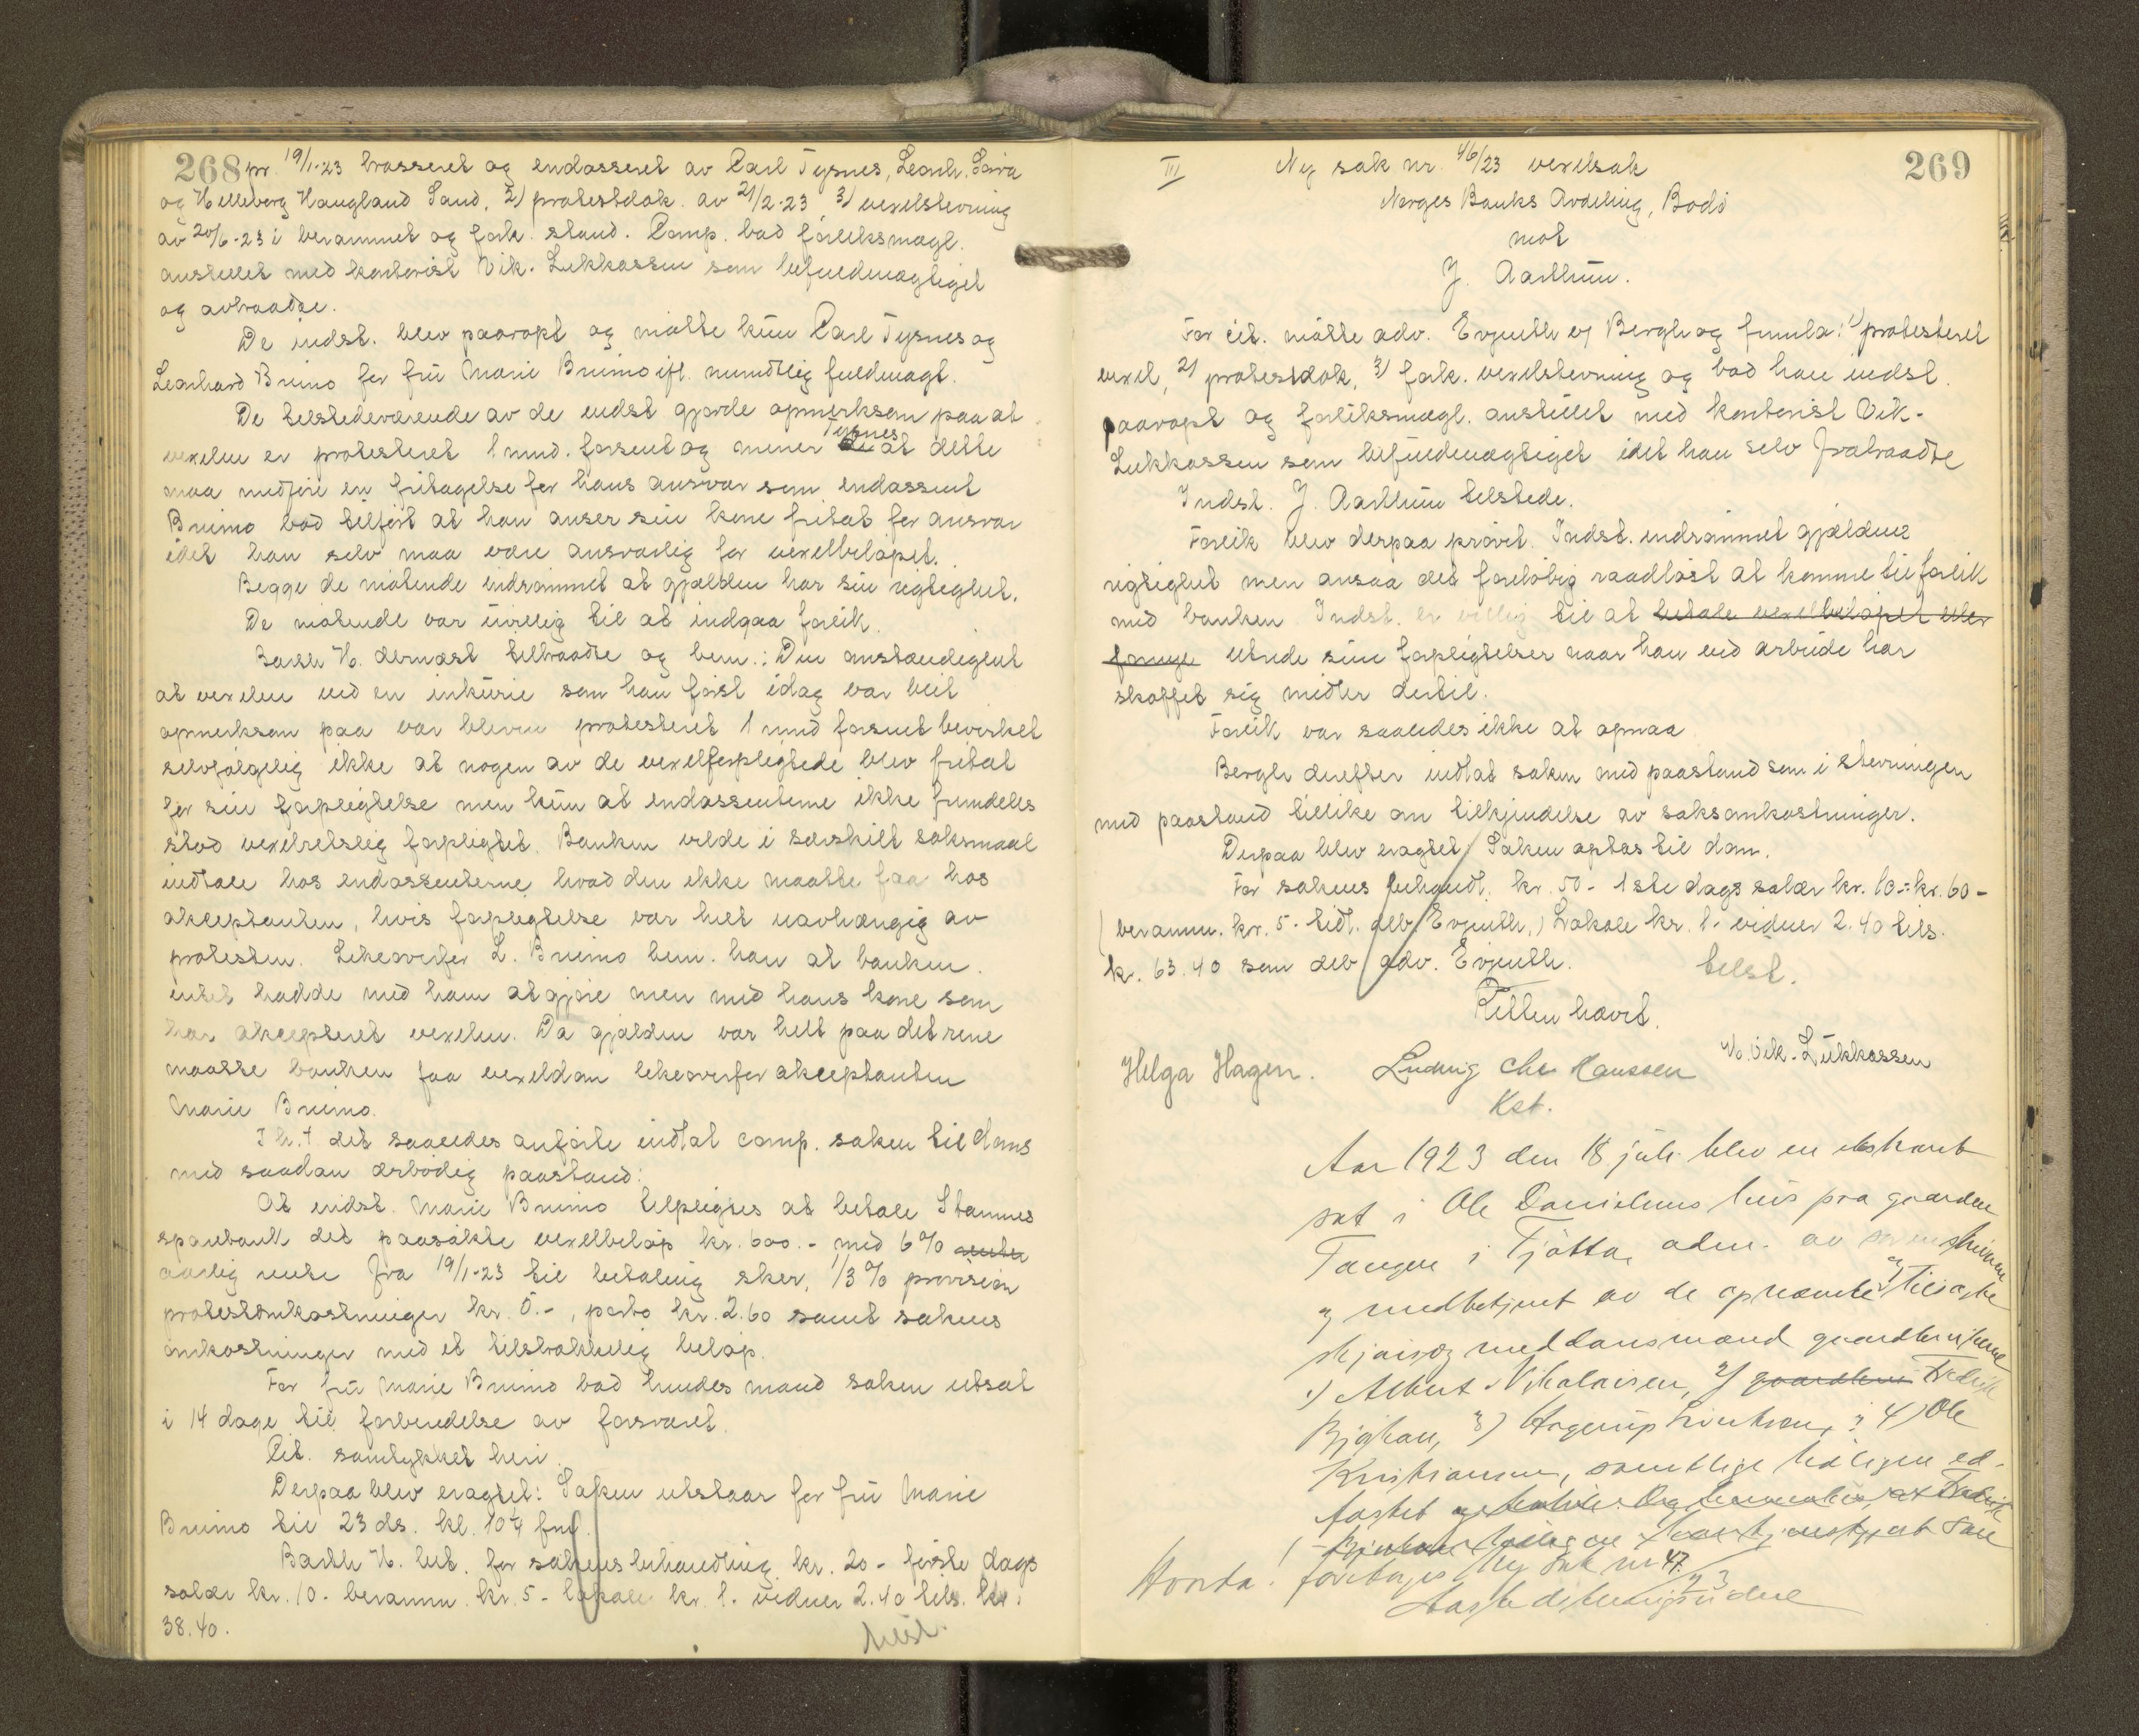 268 pr. 19/1-23 trasseret og endosseret av Carl Tysnes, Leonh.
og Helleborg Haugland Sand, 2) protestdok. av 21/2-23, 3) vexelstevning
av 20/6-23 i berammet og fork. stand. Comp. bad forliksmægl.
anstillet med kontorist Vik-Lukkassen som befuldmægtiget
og avtraadte.
De indst. blev paaropt og møtte kun Carl Tysnes og
Leonhard Bruno for fru Marie Bruno ifl. mundtlig fuldmagt.
De tilstedeværende av de indst. gjorde opmerksom paa at
vexelen er protesteret 1 mnd. forsent og mener Tysnes at dette
maa medføre en fritagelse for hans ansvar som endossent
Bruno bad tilført at han anser sin kone fritat for ansvar
idet han selv maa være ansvarlig for vexelbeløpet.
Begge de møtende indrømmet at gjælden har sin rigtighet.
De møtende var uvillig til at indgaa forlik.
Barth H. dernæst tiltraadte og bem.: Den omstændighet
at vexelen ved en inkurie som han først idag var blit
opmerksom paa var bleven protesteret 1 mnd forsent bevirket
selvfølgelig ikke at nogen av de vexelforpligtede blev fritat
for sin forpligtelse men kun at endossenterne ikke fremdeles
stod vexelretslig forpligtet. Banken vilde i særskilt søksmaal
indtale hos endossenterne hvad den ikke maatte faa hos
akceptanten, hvis forpligtelse var helt uavhængig av
protesten. Likeoverfor L. Bruno bem. han at banken
intet hadde med ham at gjøre men med hans kone som
har akcepteret vexelen. Da gjælden var helt paa det rene
maatte banken faa vexeldom likeoverfor akceptanten
Marie Bruno.
I h.t. det saaledes anførte indtok comp. saken til doms
med saadan ærbødig paastand:
At indst. Marie Bruno tilpligtes at betale Stamnes
sparebank det paasøkte vexelbeløp kr. 600.- med 6% renter
aarlig rente fra 19/1-23 til betaling sker, 1/3% provision
protestomkostninger kr. 5.-, porto kr. 2.60 samt sakens
omkostninger med et tilstrækkelig beløp.
For fru Marie Bruno bad hendes mand saken utsat
i 14 dage til forberedelse av forsvaret.
Cit. samtykket heri.
Derpaa blev eragtet: Saken utstaar for fru Marie
Bruno til 23 ds. kl. 10 1/4 fm.
Barth H. bet. for sakens behandling kr. 20 - første dags
salær kr. 10 - beramm. kr. 5 - lokale kr. 1. vidner 2.40 tils. kr.
38.40.
telst.
269
III Ny sak nr. 46/23 vexelsak
Norges Banks Avdeling, Bodø
mot
J. Aarthun.
For cit. møtte adv. Evjenth v/ Bergh og fremla: 1) protesteret
vexel, 2) protestdok, 3) fork. vexelstevning og bad han indst.
paaropt og forliksmægl. anstillet med kontorist Vik-
Lukkassen som befuldmægtiget idet han selv fratraadte
Indst. J. Aarthun tilstede.
Forlik blev derpaa prøvet. Indst. indrømmet gjældens
rigtighet men ansaa det foreløbig raadløst at komme til forlik
med banken Indst. er villig til at betale vexelbeløpet eller
utrede sine forpligtelser naar han ved arbeide har
skaffet sig midler dertil.
Forlik var saaledes ikke at opnaa
Bergh derefter indtok saken med paastand som i stevningen
med paastand tillike om tilkjendelse av saksomkostninger.
Derpaa blev eragtet: Saken optas til dom.
For sakens behandl. kr. 50 - 1ste dags salær kr. 10 - : kr. 60 -
(beramm. kr. 5 - tidl. deb. Evjenth.) Lokale kr. 1 - vidner 2.40 tils.
kr. 63.40 som deb. adv. Evjenth. telst.
Retten hævet.
Helga Hagen. Ludvig Chr Hanssen H. Vik-Lukkassen
Kst.
Aar 1923 den 18 juli blev en utskift
sat i Ole Danielsens hus paa gaarden
Tangen i Tjøtta, adm. av sorenskriveren
og medbetjent av de opnævnte og tilsagte
skjøns og meddomsmænd gaardbrukerne
1) Albert Nikolaisen, 2) gaardbr Fredrik
3) Hagerup 4) Ole
Kristiansen, samtlige tidligere ed-
fæstet
Hvorda. foretages Ny sak nr 47/23